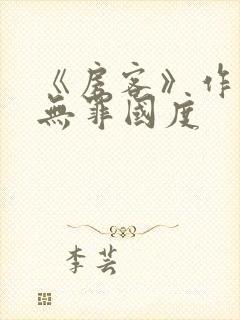 《房客》作
無罪國度
李芸